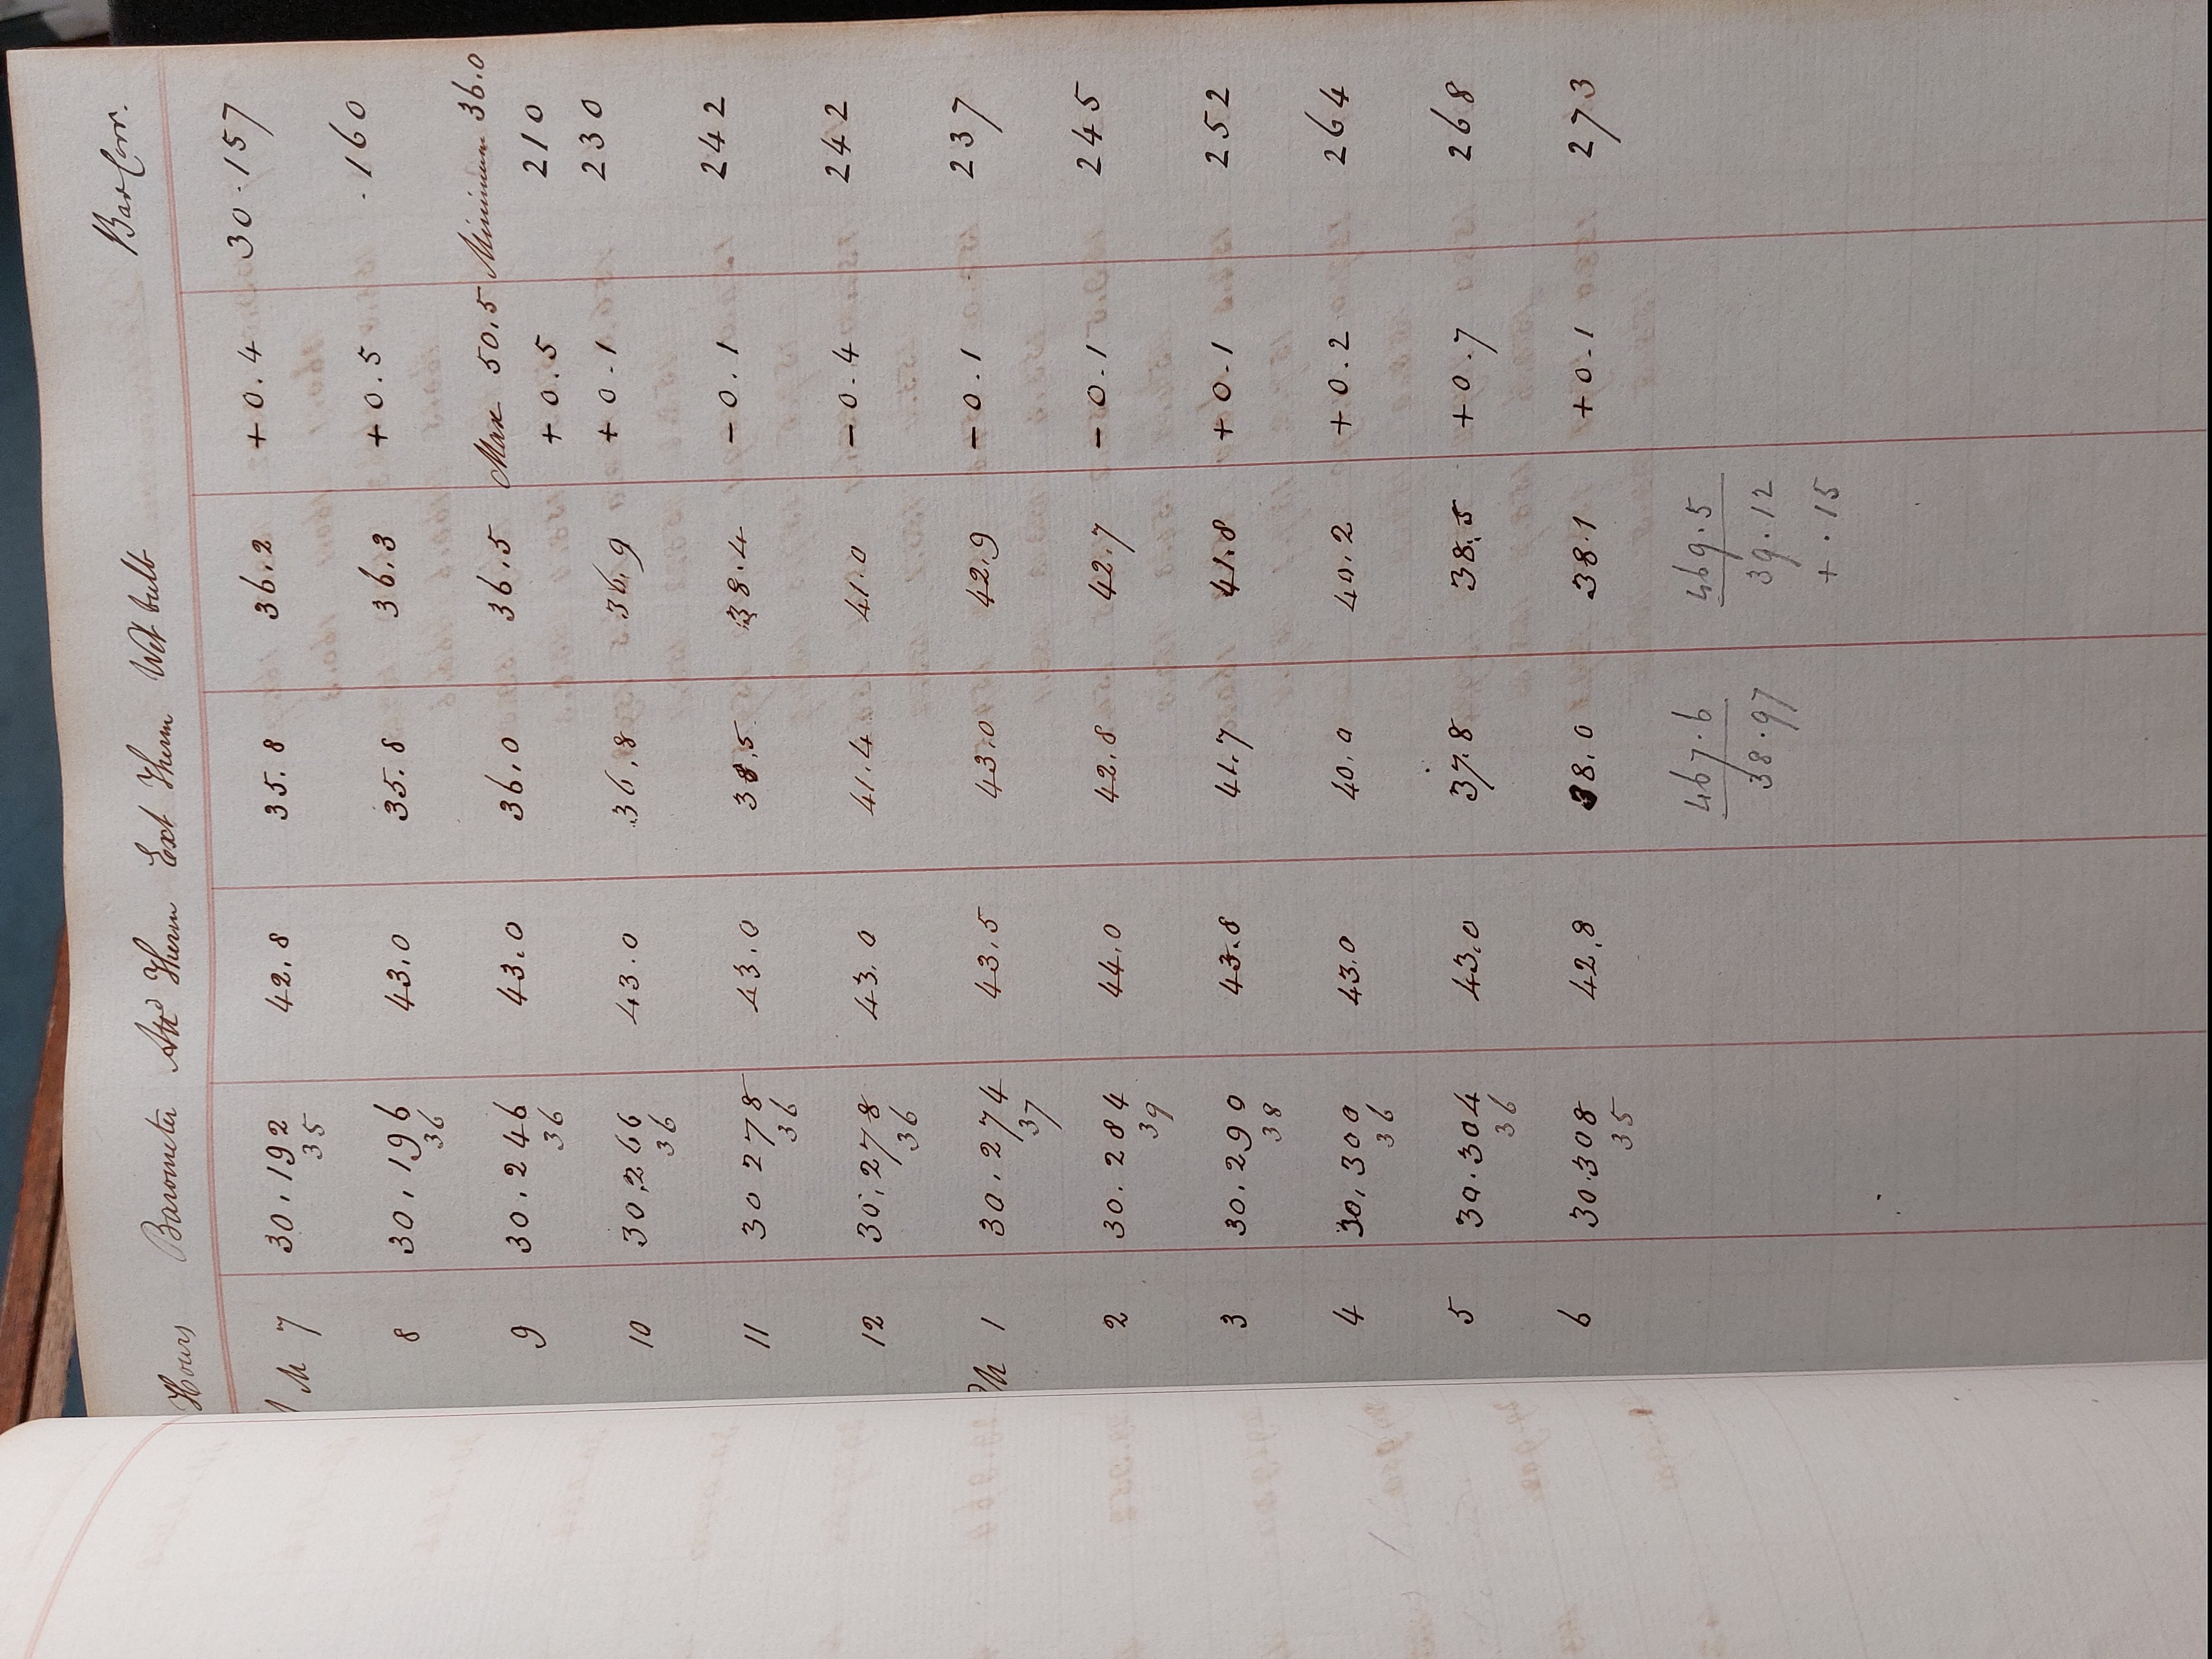 Hours Barometer Attd Therm Ext Therm Wet bulb Bar Corr.
M 7 30.192 42.8 35.8 36.2 +0.4 30.157
35
8 30.196 43.0 35.8 36.3 +0.5 .160
36
9 30.246 43.0 36.0 36.5 Max 50.5 Minimum 36.0
36 +0.5 210
10 30.266 43.0 36.8 36.9 +0.1 230
36
11 30 278 43.0 38.5 38.4 -0.1 242
36
12 30.278 43.0 41.4 41.0 -0.4 242
36
PM 1 30.274 43.5 43.0 42.9 -0.1 237
37
2 30.284 44.0 42.8 42.7 -0.1 245
39
3 30.290 43.8 41.7 41.8 +0.1 252
38
4 30.300 43.0 40.0 40.2 +0.2 264
36
5 30.304 43.0 37.8 38.5 +0.7 268
36
6 30.308 42.8 38.0 38.1 +0.1 273
35
467.6 469.5
38.97 39.12
+ .15